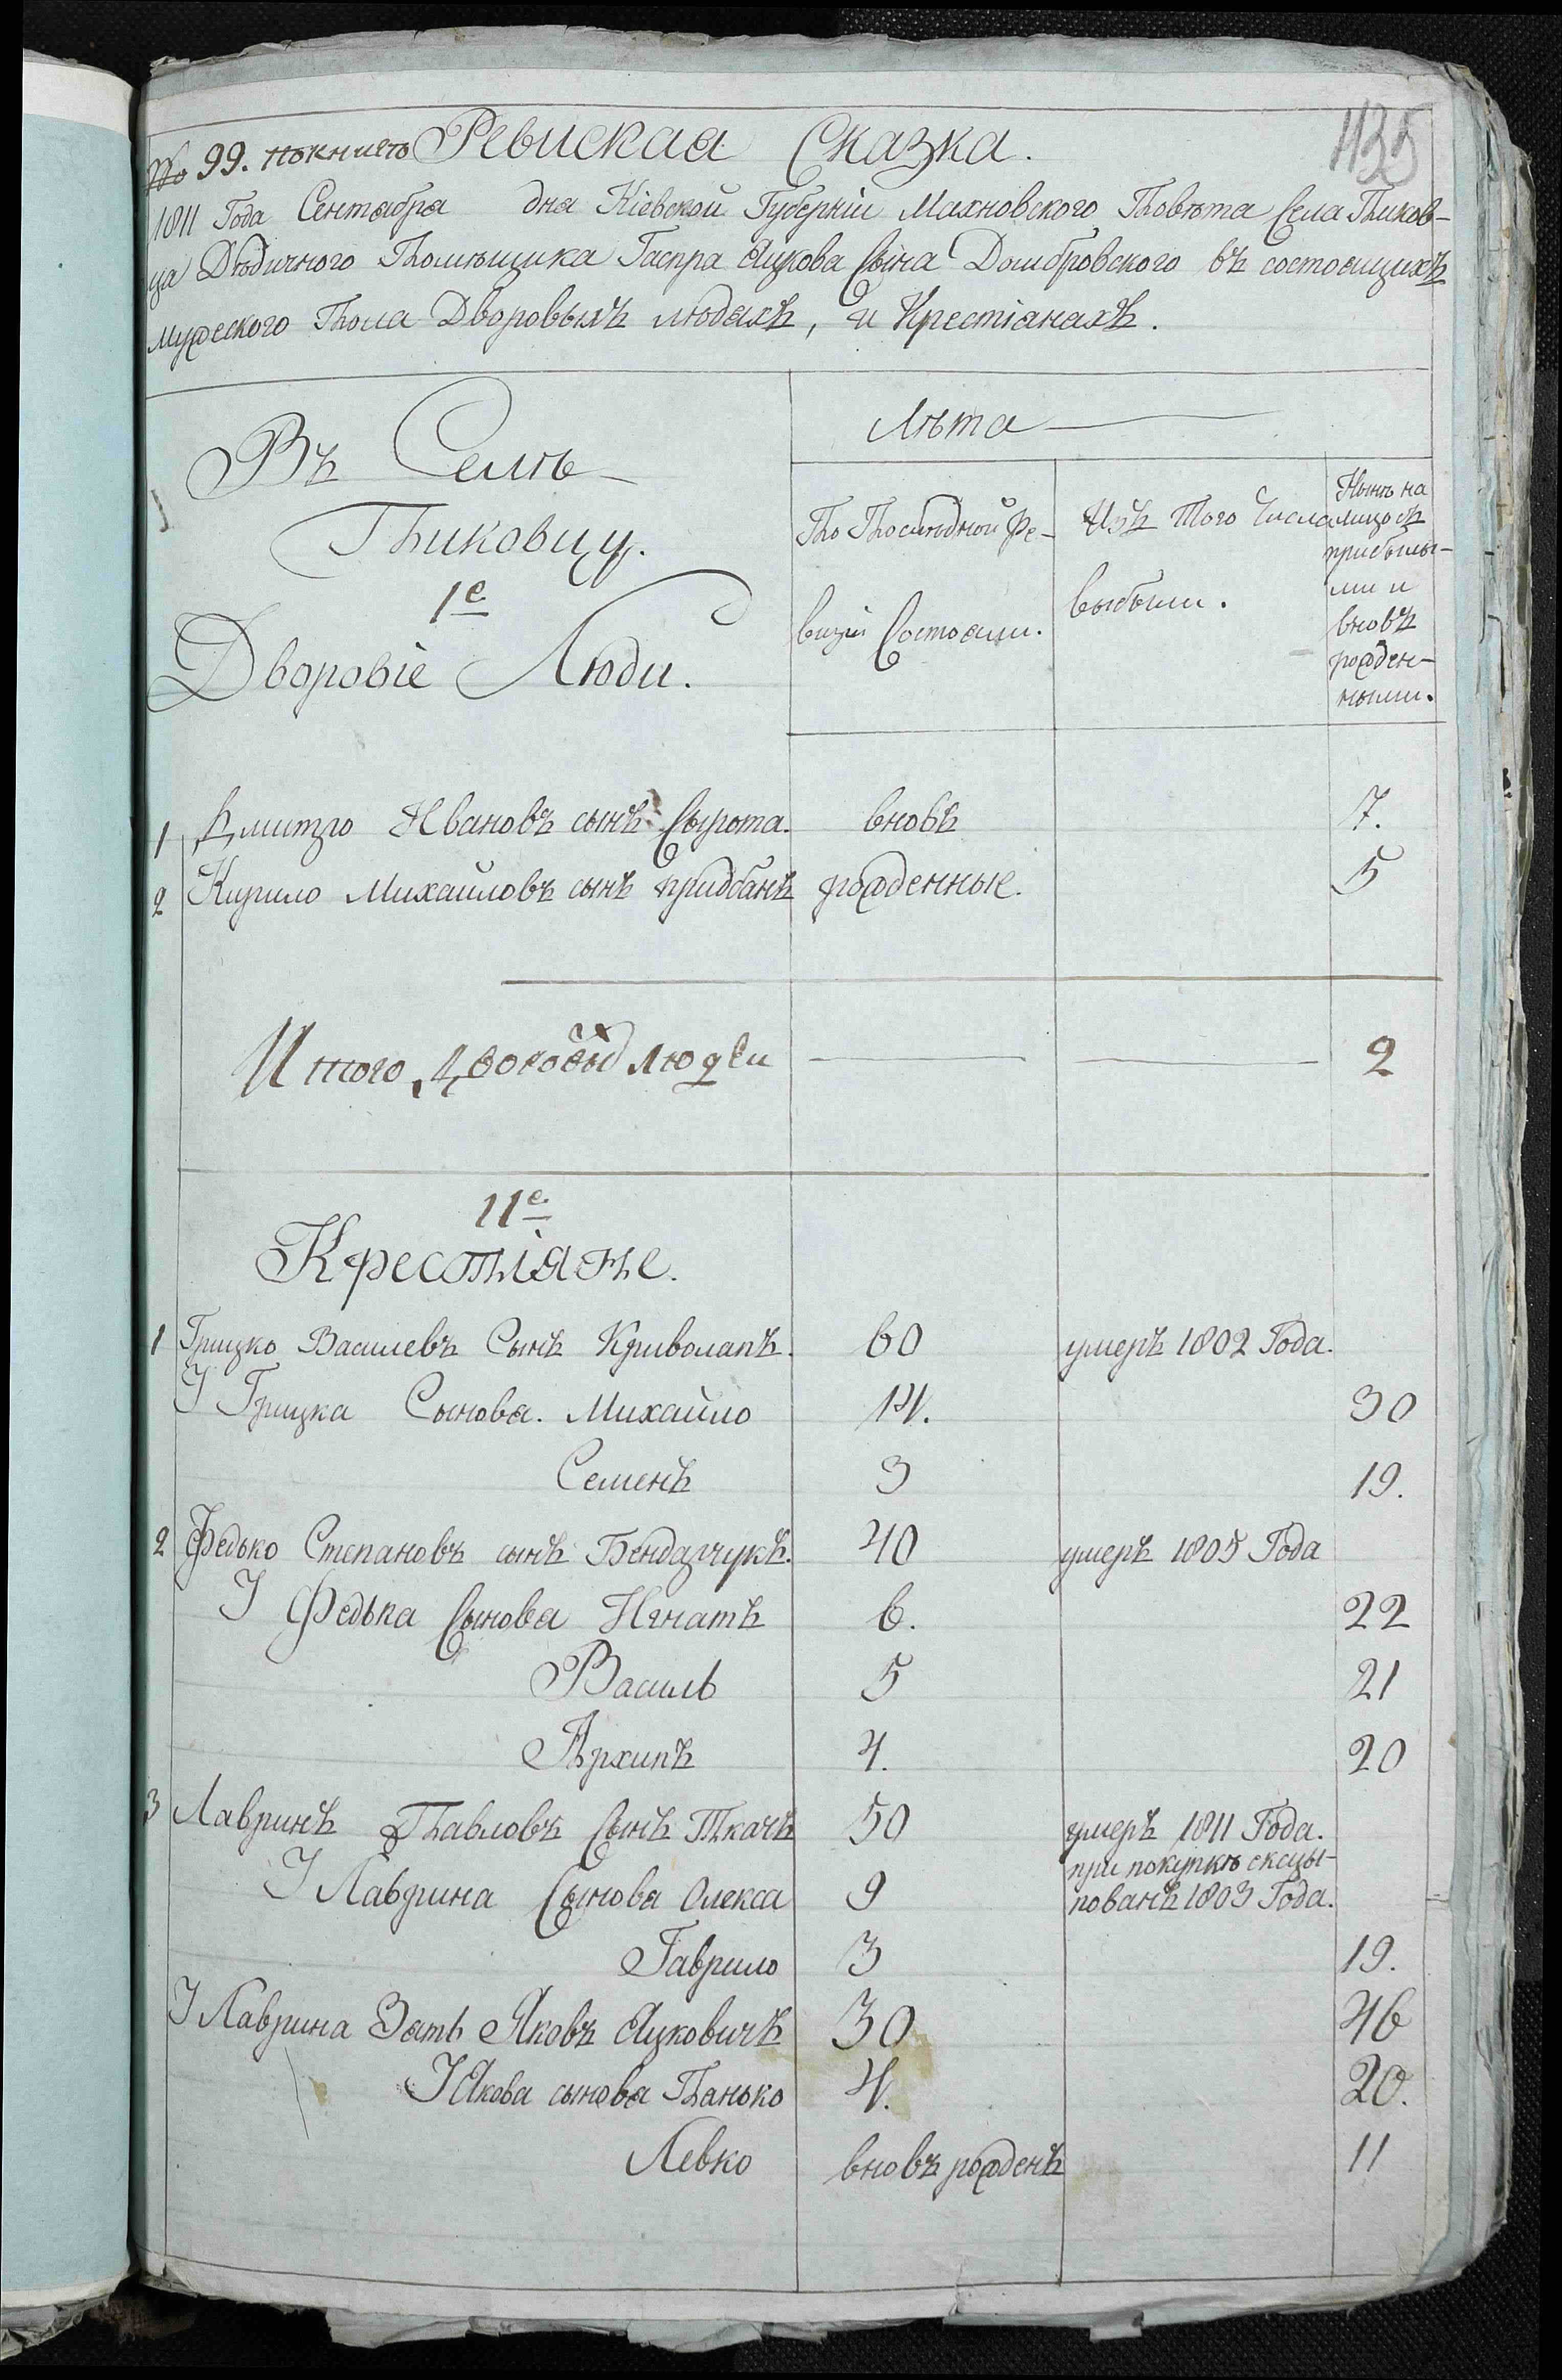 435
№ 99. покнигѣ Ревиская Сказка.
1811 Года Сентабра дня Кіевской Губерніи Махновского Повѣта Села Пиков-
ца Дѣдичного Помѣщика Гаспра Яцкова Сына Домбровского въ состоящихъ
мужеского Пола Дворовыхъ людяхъ, и Крестіанахъ.
Въ Селѣ
Пиковцу.
1е
Дворовіе Люди.
Лѣта
По Послѣдной Ре-
визіи Состояли.
Изъ Того Числа
выбыли.
Нынѣ на
лицо съ
прибылы-
ми и
вновъ
рожден-
ными.
1 Дмитро Ивановъ сынъ Сырота. вновъ 7.
2 Кирило Михайловъ сынъ придбанъ рожденные. 5
Итого дворовых людеи 2
11е
Крестіяне.
1 Грицко Василевъ Сынъ Криволапъ. 60 умеръ 1802 Года.
У Грицка Сынова. Михайло 14. 30
Семенъ 3 19.
2 Федько Степановъ сынъ Бендарчукъ. 40 умеръ 1805 Года
У Федька Сынова Игнатъ 6. 22
Василь 5 21
Архипъ 4. 20
3 Лавринъ Павловъ Сынъ Ткачъ 50 умеръ 1811 Года.
У Лаврина Сынова Олекса 9 при покупкѣ ексцы-
пованъ 1803 Года.
Гаврило 3 19.
У Лаврина Зять Яковъ Яцковичъ 30 46
У Якова сынова Панько 4. 20.
Левко вновъ рожденъ 11